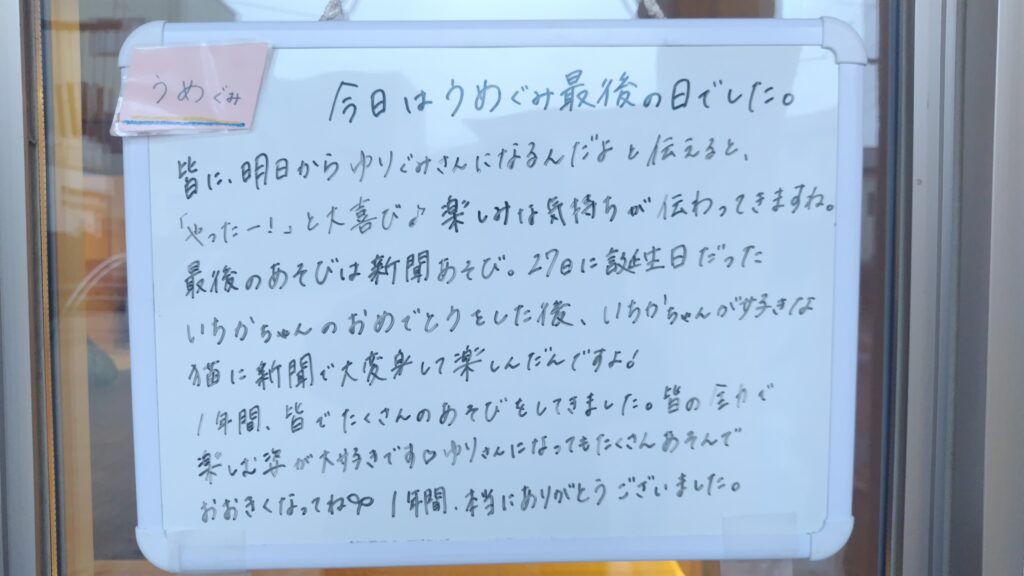 うめぐみ
今日はうめぐみ最後の日でした。
皆に、明日からゆりぐみさんになるんだよと伝えると、
「やったー!」と大喜び♪楽しみな気持ちが伝わってきますね。
最後のあそびは新聞あそび。27日に誕生日だった
いちかちゃんのおめでとうをした後、いちかちゃんが好きな
猫に新聞で大変身して楽しんだんですよ!
1年間、皆でたくさんのあそびをしてきました。皆の全力で
楽しむ姿が大好きです♡ゆりさんになってもたくさんあそんで
おおきくなってね 1年間、本当にありがとうございました。